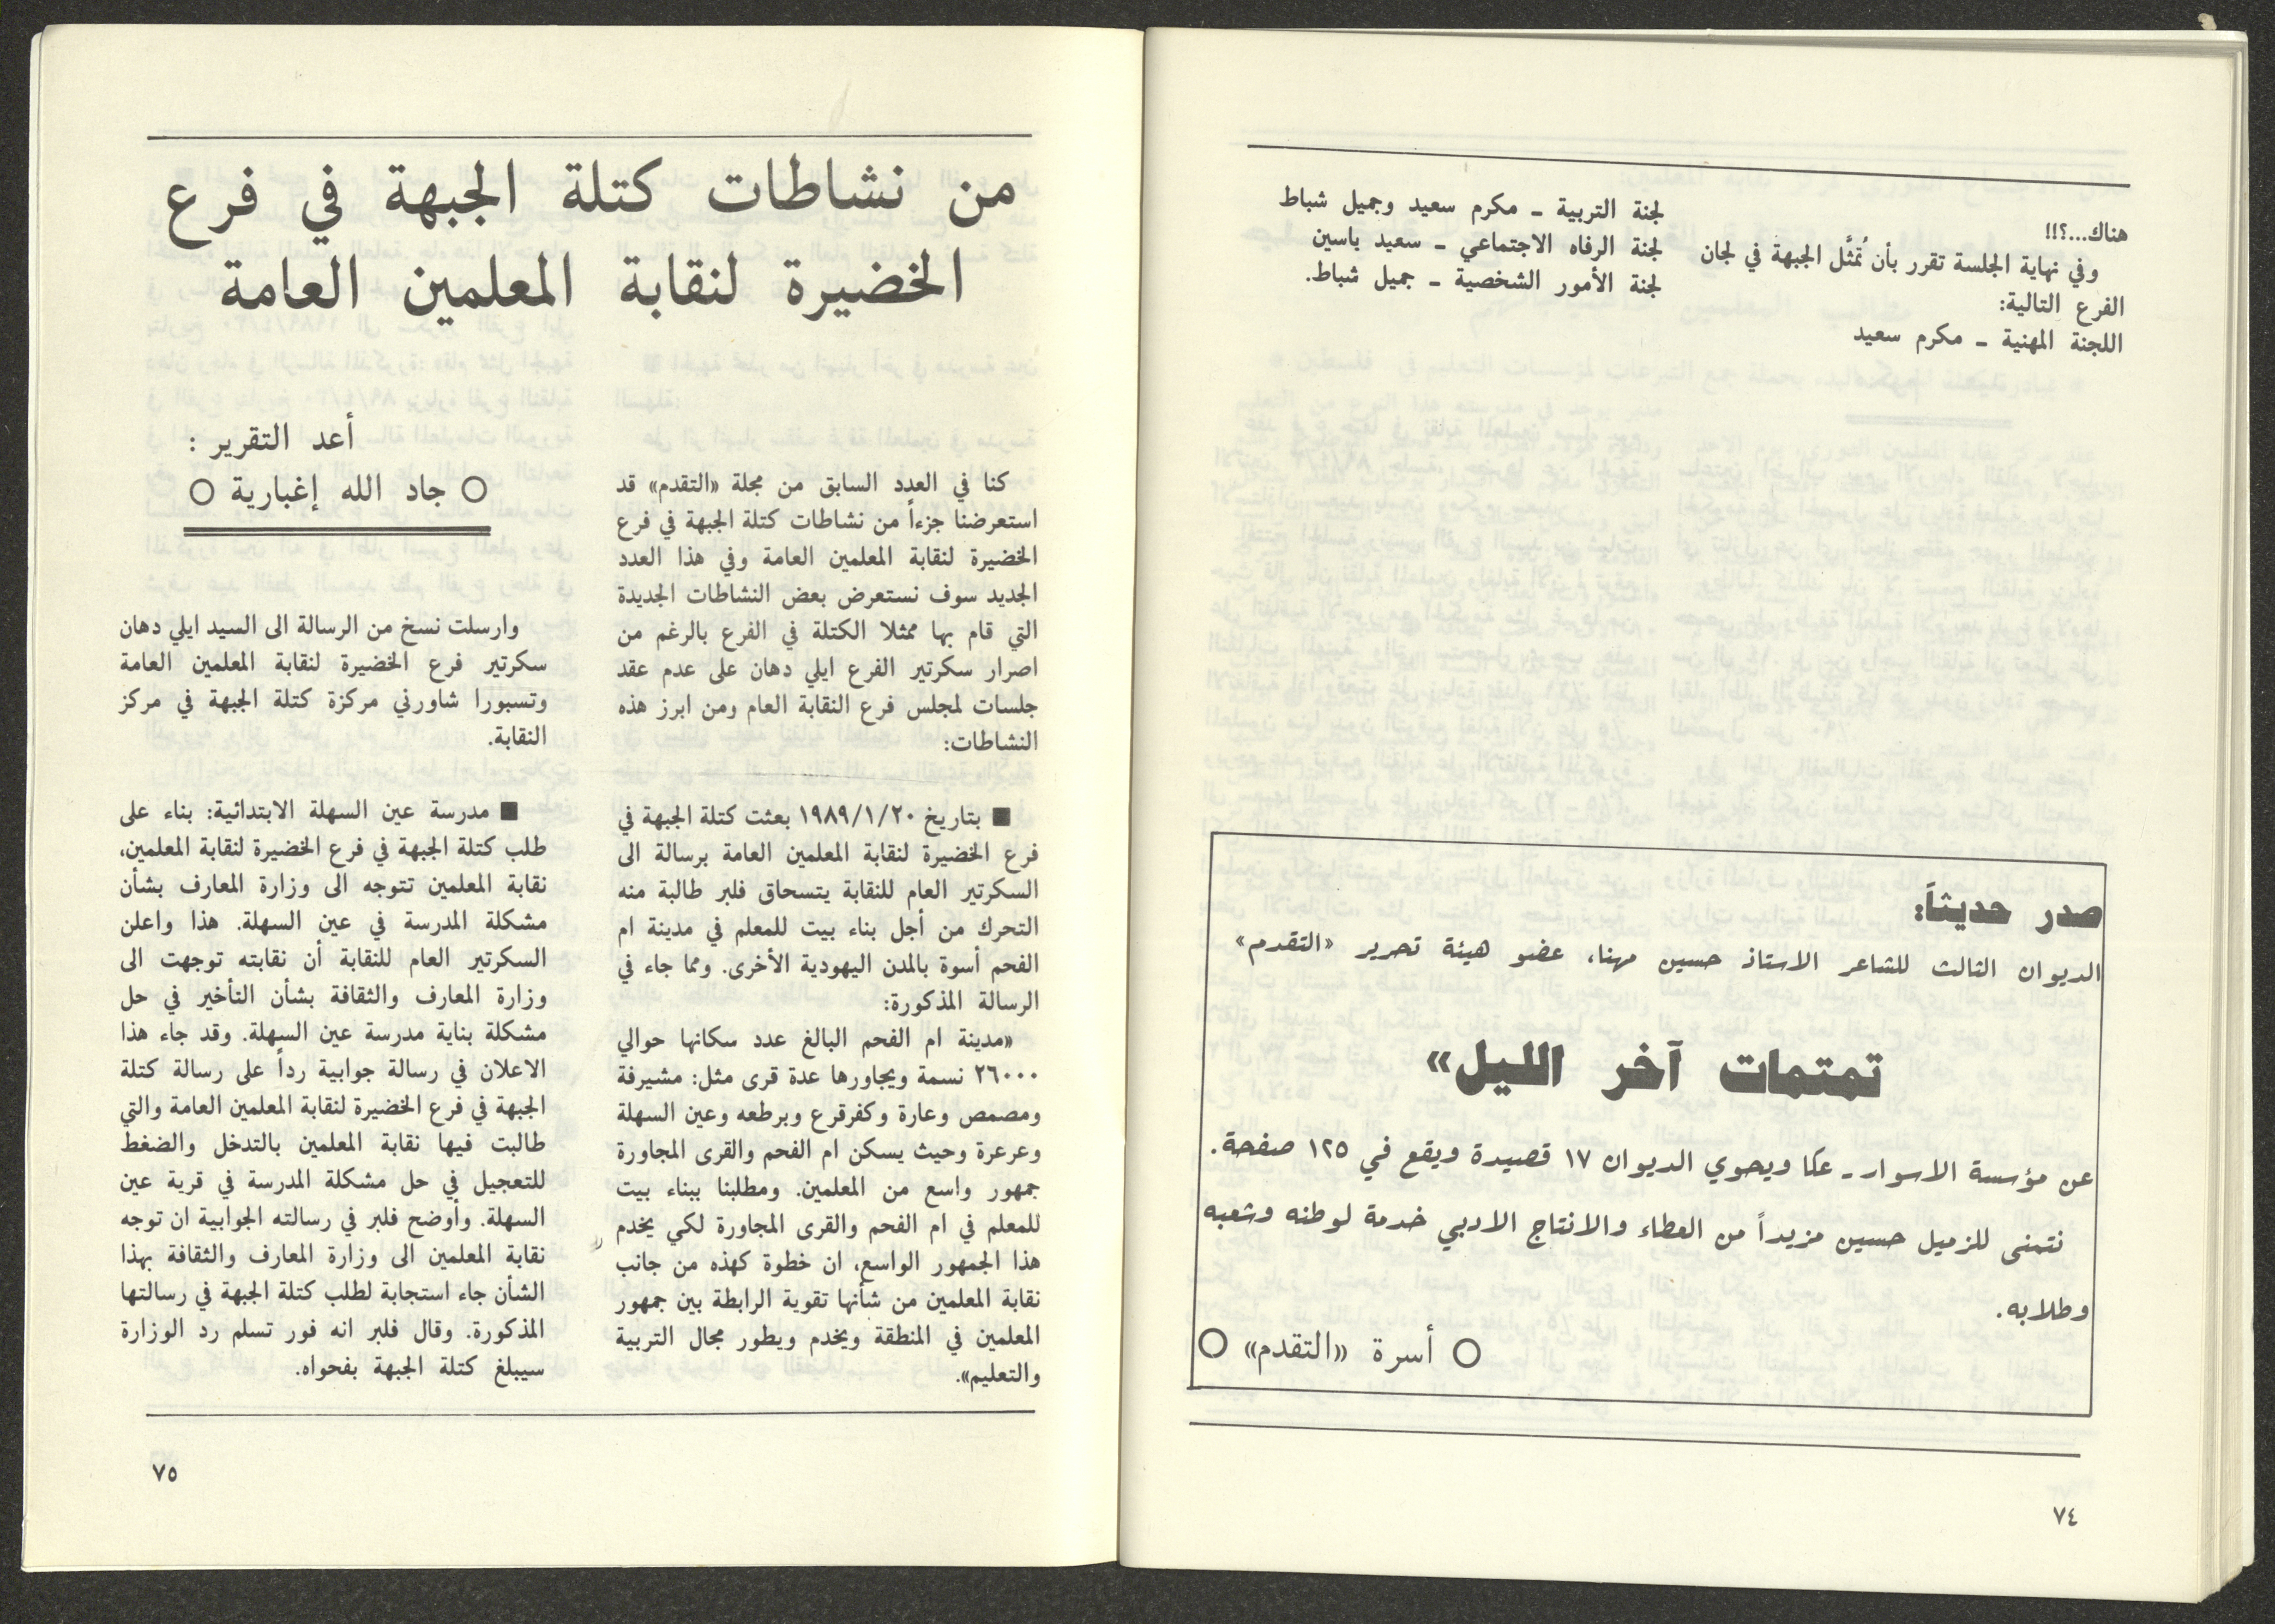 هناك...؟!!
وفي نهاية الجلسة تقرر بأن تُمثَّل الجبهة في لجان
الفرع التالية:
اللجنة المهنية ـ مكرم سعيد
لجنة التربية ـ مكرم سعيد وجميل شباط
لجنة الرفاه الاجتماعي ـ سعيد ياسين
لجنة الأمور الشخصية ـ جميل شباط.
صدر حديثاً:
الديوان الثالث للشاعر الاستاذ حسين مهنا، عضو هيئة تحرير «التقدم»
تمتمات آخر الليل»
عن مؤسسة الاسوار ـ عكا ويحوي الديوان ١٧ قصيدة ويقع في ١٢٥ صفحة.
نتمنى للزميل حسين مزيداً من العطاء والانتاج الادبي خدمة لوطنه وشعبه
وطلابه.
○ أسرة «التقدم» ○
٧٤
من نشاطات كتلة الجبهة في فرع
الخضيرة لنقابة المعلمين العامة
أعد التقرير :
○ جاد الله إغبارية ○
كنا في العدد السابق من مجلة «التقدم» قد
استعرضنا جزءاً من نشاطات كتلة الجبهة في فرع
الخضيرة لنقابة المعلمين العامة وفي هذا العدد
الجديد سوف نستعرض بعض النشاطات الجديدة
التي قام بها ممثلا الكتلة في الفرع بالرغم من
اصرار سكرتير الفرع ايلي دهان على عدم عقد
جلسات لمجلس فرع النقابة العام ومن ابرز هذه
النشاطات:
■ بتاريخ ١٩٨٩/١/٢٠ بعثت كتلة الجبهة في
فرع الخضيرة لنقابة المعلمين العامة برسالة الى
السكرتير العام للنقابة يتسحاق فلبر طالبة منه
التحرك من أجل بناء بيت للمعلم في مدينة ام
الفحم أسوة بالمدن اليهودية الأخرى. ومما جاء في
الرسالة المذكورة:
«مدينة ام الفحم البالغ عدد سكانها حوالي
٢٦٠٠٠ نسمة ويجاورها عدة قرى مثل: مشيرفة
ومصمص وعارة وكفرقرع وبرطعه وعين السهلة
وعرعرة وحيث يسكن ام الفحم والقرى المجاورة
جمهور واسع من المعلمين. ومطلبنا ببناء بيت
للمعلم في ام الفحم والقرى المجاورة لكي يخدم
هذا الجمهور الواسع، ان خطوة كهذه من جانب
نقابة المعلمين من شأنها تقوية الرابطة بين جمهور
المعلمين في المنطقة ويخدم ويطور مجال التربية
والتعليم».
وارسلت نسخ من الرسالة الى السيد ايلي دهان
سكرتير فرع الخضيرة لنقابة المعلمين العامة
وتسبورا شاورني مركزة كتلة الجبهة في مركز
النقابة.
■ مدرسة عين السهلة الابتدائية: بناء على
طلب كتلة الجبهة في فرع الخضيرة لنقابة المعلمين،
نقابة المعلمين تتوجه الى وزارة المعارف بشأن
مشكلة المدرسة في عين السهلة. هذا واعلن
السكرتير العام للنقابة أن نقابته توجهت الى
وزارة المعارف والثقافة بشأن التأخير في حل
مشكلة بناية مدرسة عين السهلة. وقد جاء هذا
الاعلان في رسالة جوابية رداً على رسالة كتلة
الجبهة في فرع الخضيرة لنقابة المعلمين العامة والتي
طالبت فيها نقابة المعلمين بالتدخل والضغط
للتعجيل في حل مشكلة المدرسة في قرية عين
السهلة. وأوضح فلبر في رسالته الجوابية ان توجه
نقابة المعلمين الى وزارة المعارف والثقافة بهذا
الشأن جاء استجابة لطلب كتلة الجبهة في رسالتها
المذكورة. وقال فلبر انه فور تسلم رد الوزارة
سيبلغ كتلة الجبهة بفحواه.
٧٥